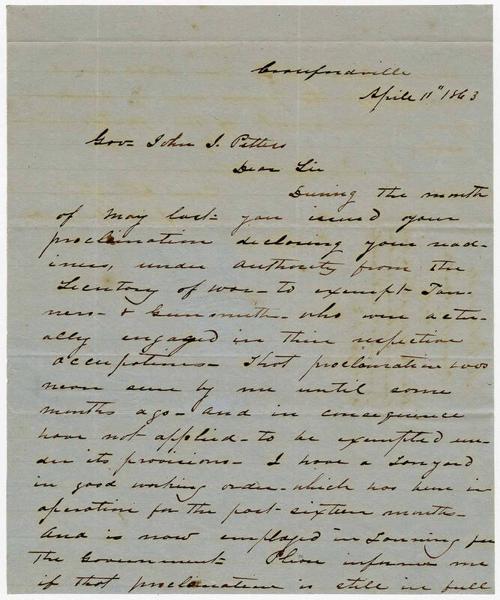 Crawfordville
Aprile 11" 1863
Gov- John J. Pettus
Dear Sir
During the month
of May last- you issued your
proclamation declaring your read-
iness, under authority from the
Secretary of war- to exempt Tan-
ners- & Gunsmith- who were actu-
ally engaged in their respective
occupations- That proclamation was
never seen by me until some
months ago- and in consequence
have not applied- to be exempted un-
der its provisions- I have a Tanyard
in good working order- which has been in
operation for the past sixteen months-
And is now employed in Tanning for
the Government- Please informe me
if that proclamation is still in full